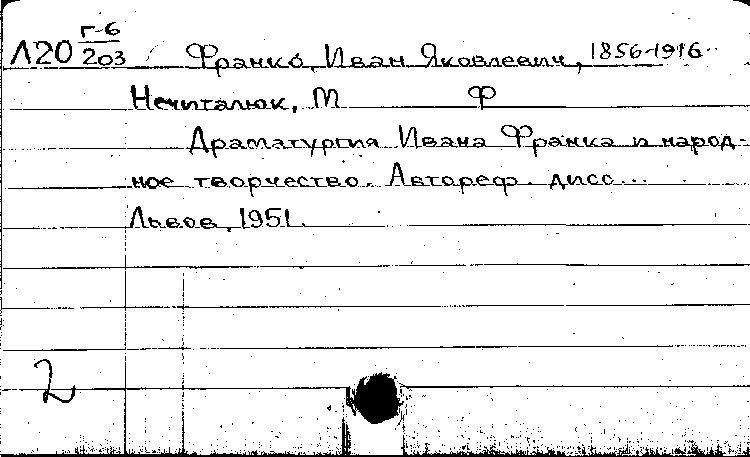 Л20 Г-6/203 Франко, Иван Яковлевич, 1856-1916
Нечиталюк, М Ф
Драматургия Ивана Франка и народ-
ное творчество. Автореф. дисс...
Львов, 1951.
2